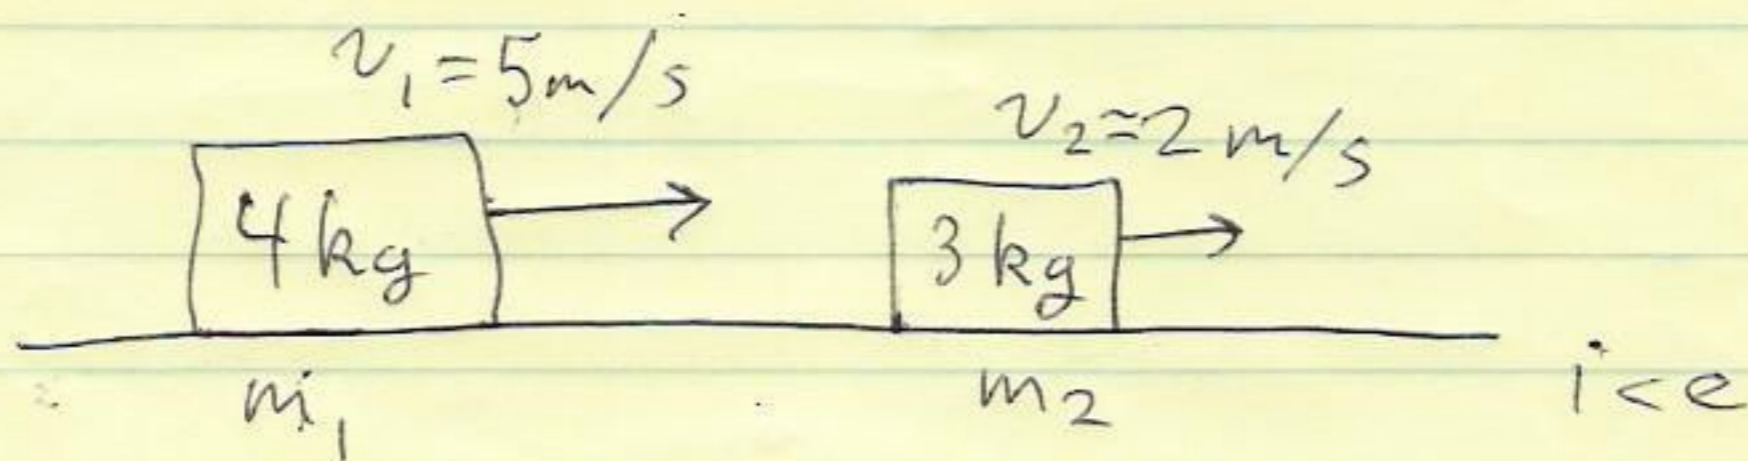 v₁ = 5 m/s
v₂ = 2 m/s
4 kg
3 kg
m₁
m₂
ice